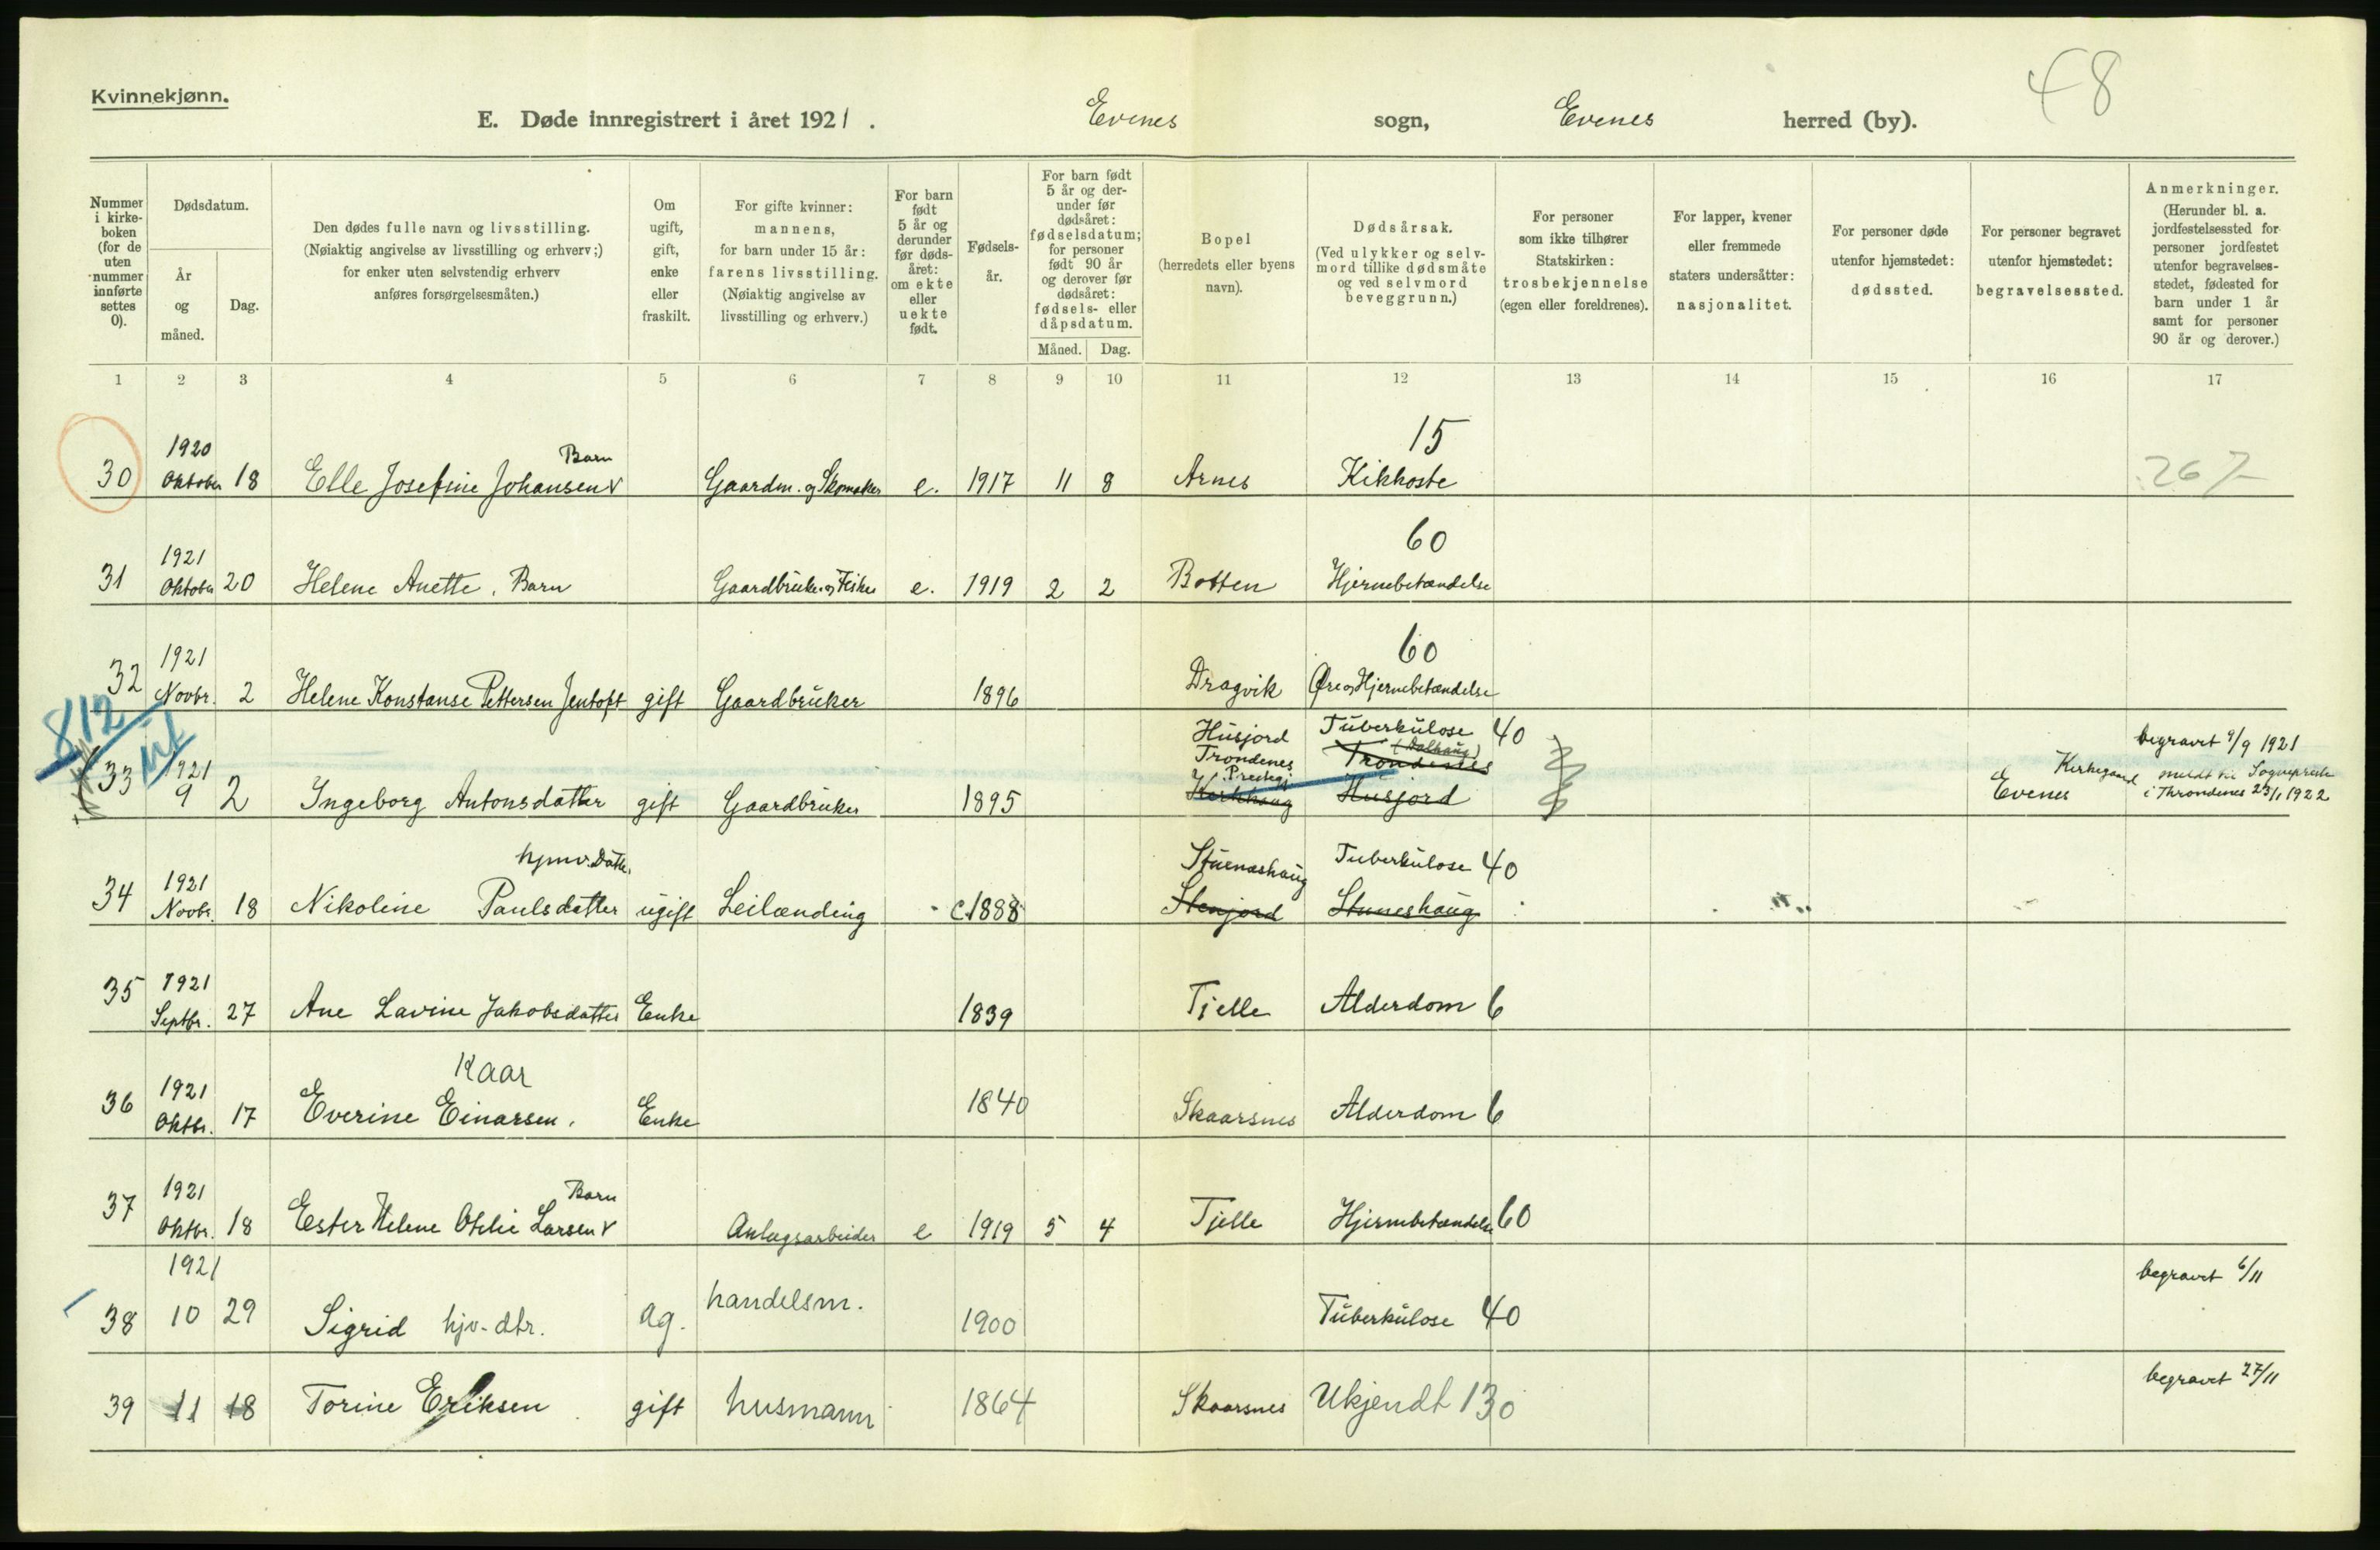 Kvinnekjønn.
48
E. Døde innregistrert i året 1921. Evenes sogn, Evenes herred (by).
Nummer i kirke-boken (for de uten nummer innførte settes 0).
Dødsdatum.
År og måned.
Dag.
Den dødes fulle navn og livsstilling.
(Nøiaktig angivelse av livsstilling og erhverv;)
for enker uten selvstendig erhverv
anføres forsørgelsesmåten.)
Om ugift, gift, enke eller fraskilt.
For gifte kvinner:
mannens,
for barn under 15 år:
farens livsstilling.
(Nøiaktig angivelse av
livsstilling og erhverv.)
For barn født 5 år og derunder før døds-året: om ekte eller uekte født.
Fødsels-år.
For barn født 5 år og der-under før dødsåret: fødselsdatum; for personer født 90 år og derover før dødsåret: fødsels- eller dåpsdatum.
Måned.
Dag.
Bopel
(herredets eller byens navn).
Dødsårsak.
(Ved ulykker og selv-mord tillike dødsmåte og ved selvmord beveggrunn.)
For personer som ikke tilhører Statskirken: trosbekjennelse (egen eller foreldrenes).
For lapper, kvener eller fremmede staters undersåtter: nasjonalitet.
For personer døde utenfor hjemstedet: dødssted.
For personer begravet utenfor hjemstedet: begravelsessted.
Anmerkninger.
(Herunder bl. a. jordfestelsessted for personer jordfestet utenfor begravelses-stedet, fødested for barn under 1 år samt for personer 90 år og derover.)
1 2 3 4 5 6 7 8 9 10 11 12 13 14 15 16 17
1920 Barn 15
30 Oktober 18 Elle Josefine Johansen Gaardm. og Skomaker e. 1917 11 8 Arnes Kikhoste 267
1921 60
31 Oktober 20 Helene Anette, Barn Gaardbruker og Fisker e. 1919 2 2 Botten Hjernebetændelse
1921 60
32 Novbr. 2 Helene Konstanse Pettersen Jentoft gift Gaardbruker 1896 Dragvik Øre og Hjernebetændelse
812
Husjord Tuberkulose 40 begravet 9/9 1921
Trondenes Trondenes
33 1921 9 2 Ingeborg Antonsdatter gift Gaardbruker 1895 Prestegj. Husjord Kirkegaard Evenes meldt til Sogneprest i Throndenes 23/1 1922
hjmv. Datter Stuneshaug Tuberkulose 40
34 1921 Novbr. 18 Nikoline Paulsdatter ugift Leilænding c. 1888 Stenjord Stuneshaug
35 1921 Septbr. 27 Ane Lavine Jakobsdatter Enke 1839 Tjelle Alderdom 6
Kaar
36 1921 Oktbr. 17 Everine Einarsen. Enke 1840 Skaarsnes Alderdom 6
Barn
37 1921 Oktbr. 18 Ester Helene Otelie Larsen Anlægsarbeider e 1919 5 4 Tjelle Hjernebetændelse 60
1921 begravet 6/11
38 10 29 Sigrid hjv-dtr. ug. handelsm. 1900 Tuberkulose 40
begravet 27/11
39 11 18 Torine Eriksen gift husmann 1864 Skaarsnes Ukjendt 130